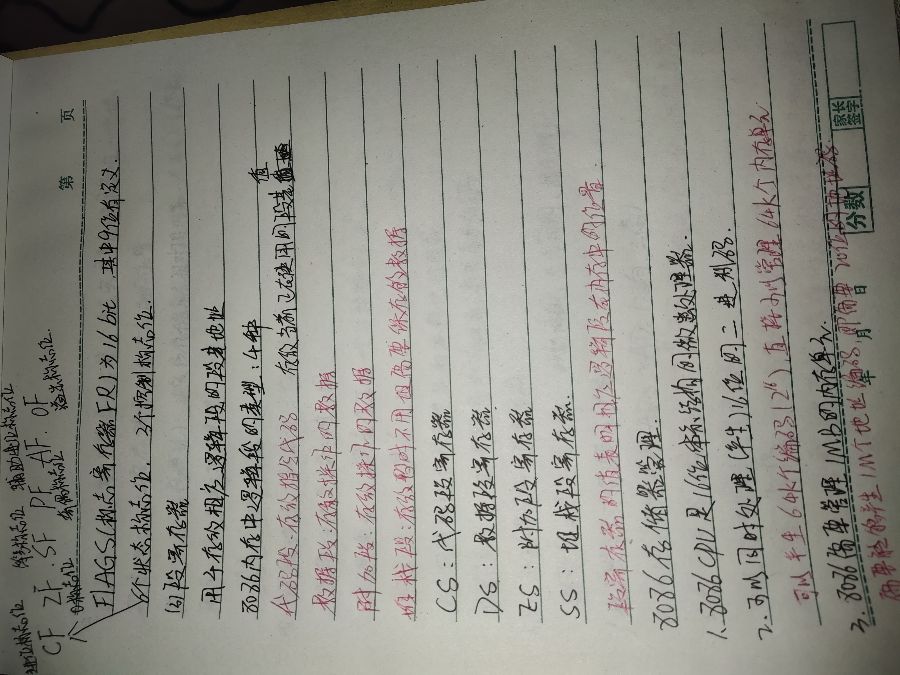 第 页
进位标志位 符号标志位 辅助进位标志位
CF ZF SF PF AF OF
零标志位 奇偶标志位 溢出标志位
FLAGS(标志寄存器FR)为16bit 其中9位有定义.
6个状态标志位. 3个控制标志位.
(3)段寄存器
用于存放相应逻辑段的段基地址
8086内存中逻辑段的类型:4种
代码段:存放指令代码 存放当前正在使用的段基值
数据段:存放操作的数据
附加段:存放操作的数据
堆栈段:存放暂时不用但需要保存的数据
CS:代码段寄存器
DS:数据段寄存器
ES:附加段寄存器
SS:堆栈段寄存器.
段寄存器的值表明相应逻辑段在内存中的位置.
8086存储器管理.
1.8086CPU是16位体系结构的微处理器.
2.可以同时处理(产生)16位的二进制码.
可以产生64K个编码(2¹⁶).直接可以管理64K个内存单元
3.8086需要管理1MB的内存单元
需要能够产生1M个地址编码,即需要20位的地址码
年 月 日
分数
家长签字